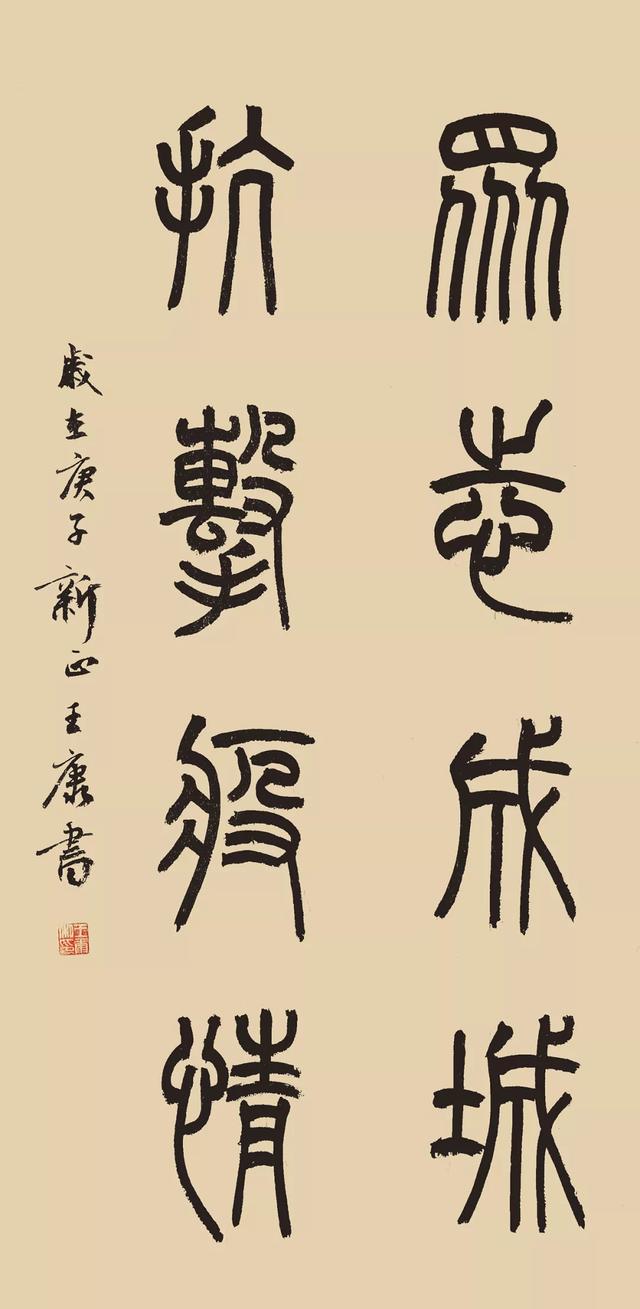 眾志成城
抗擊疫情
歲在庚子新正王康書